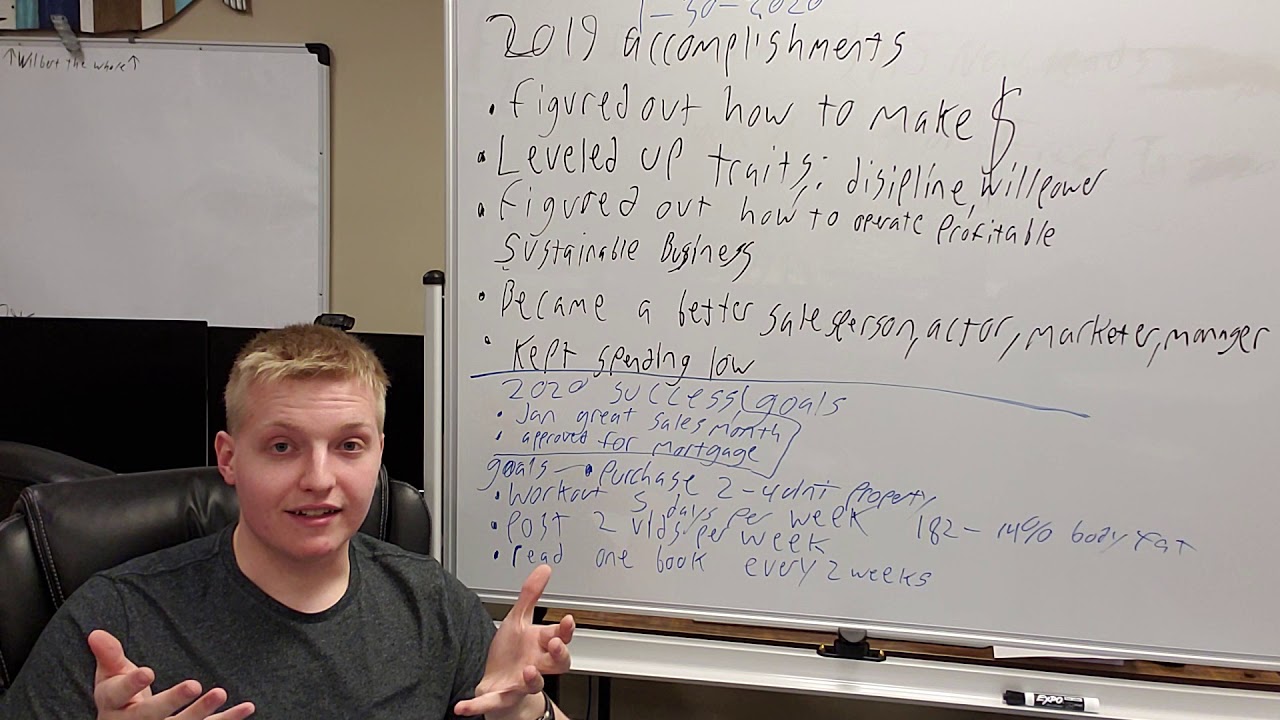 ↑Wilbert the whale↑
1-30-2020
2019 accomplishments
• Figured out how to make $
• Leveled up traits: disipline, willpower
• Figured out how to operate profitable
Sustainable Business
• Became a better salesperson, actor, marketer, manager
• Kept spending low
2020 success/goals
• Jan great sales month
• approved for mortgage
goals - • Purchase 2-4 unit property
• Workout 5 days per week 182 - 14% body fat
• Post 2 vids per week
• read one book every 2 weeks
EXPO